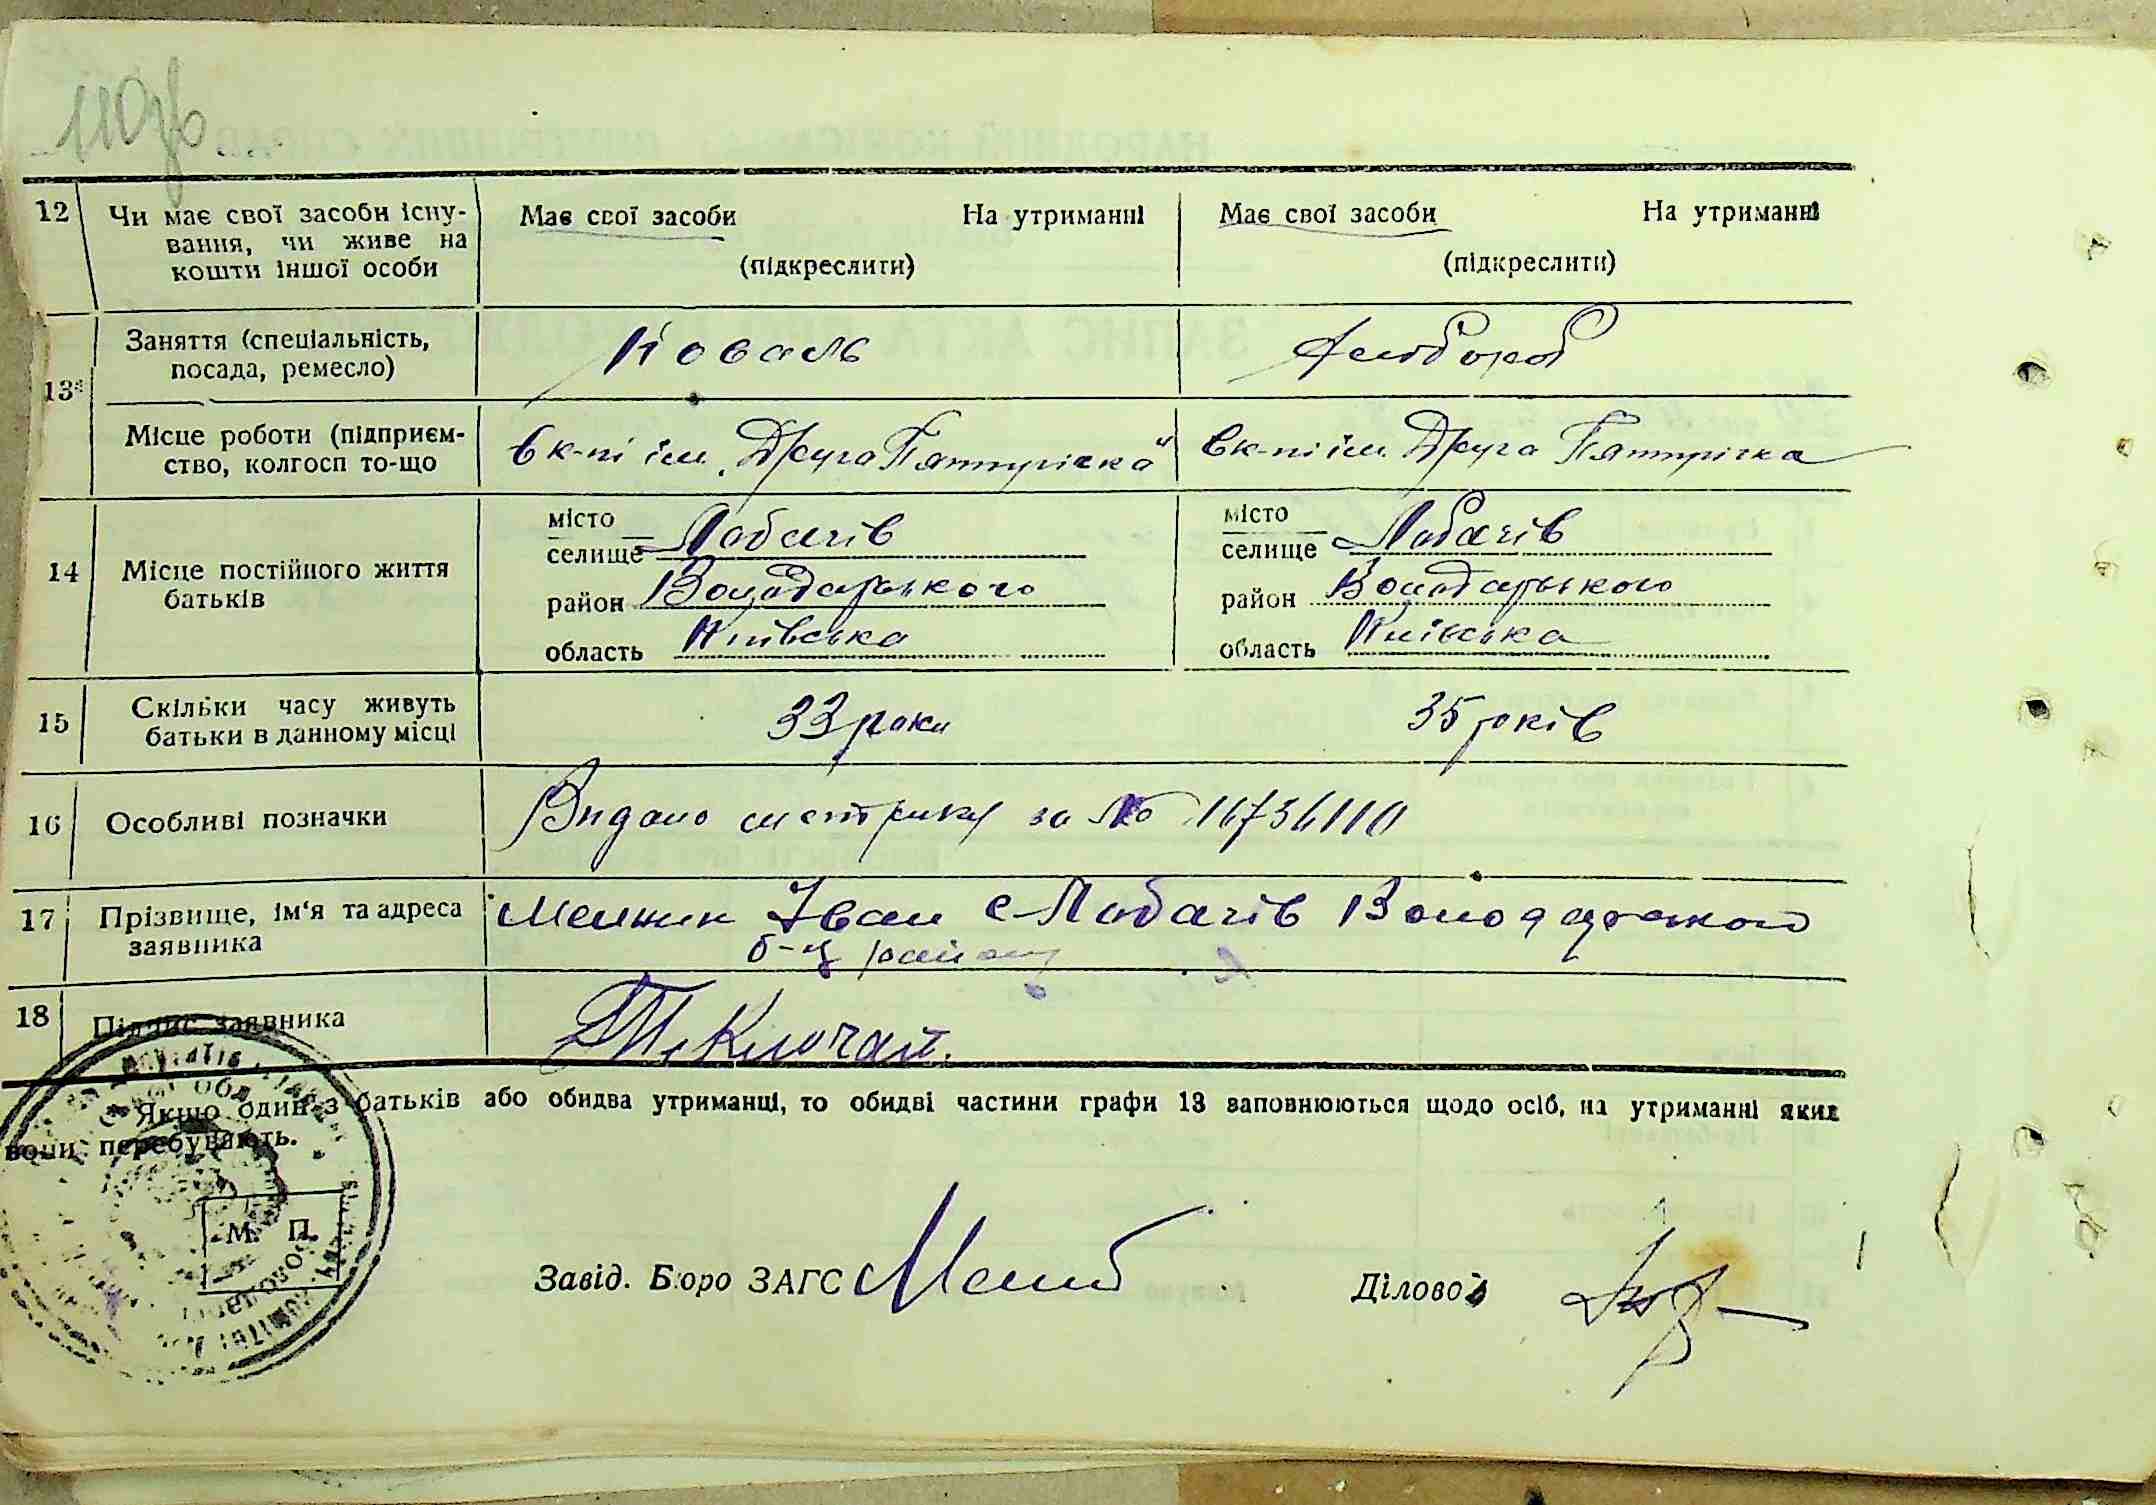 110зв
12 Чи має свої засоби існу- Має свої засоби На утриманні Має свої засоби На утриманні
вання, чи живе на
кошти іншої особи (підкреслити) (підкреслити)
13* Заняття (спеціальність, Коваль Хлібороб
посада, ремесло)
Місце роботи (підприєм- в к-пі ім. „Друга Пятирічка" в к-пі ім. Друга Пятирічка
ство, колгосп то-що
14 Місце постійного життя
батьків
місто
селище Лобачів
район Володарського
область Київська
місто
селище Лобачів
район Володарського
область Київська
15 Скільки часу живуть 33 роки 35 років
батьки в данному місці
16 Особливі позначки Видано метрику за №
17 Прізвище, ім'я та адреса Мельник Іван с Лобачів Володарського
заявника б-ц району
18 Підпис заявника
Якщо один з батьків або обидва утриманці, то обидві частини графи 13 заповнюються щодо осіб, на утриманні яких
вони перебувають.
М. П.
Завід. Бюро ЗАГС Діловод